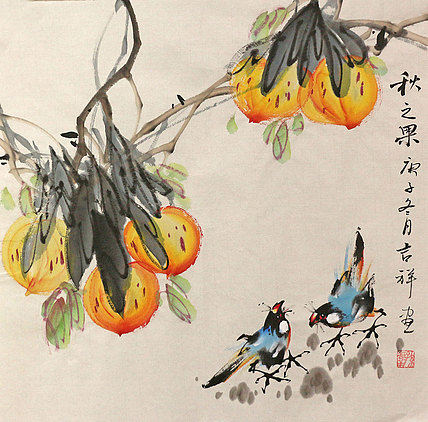 秋之果 庚子冬月 吉祥画